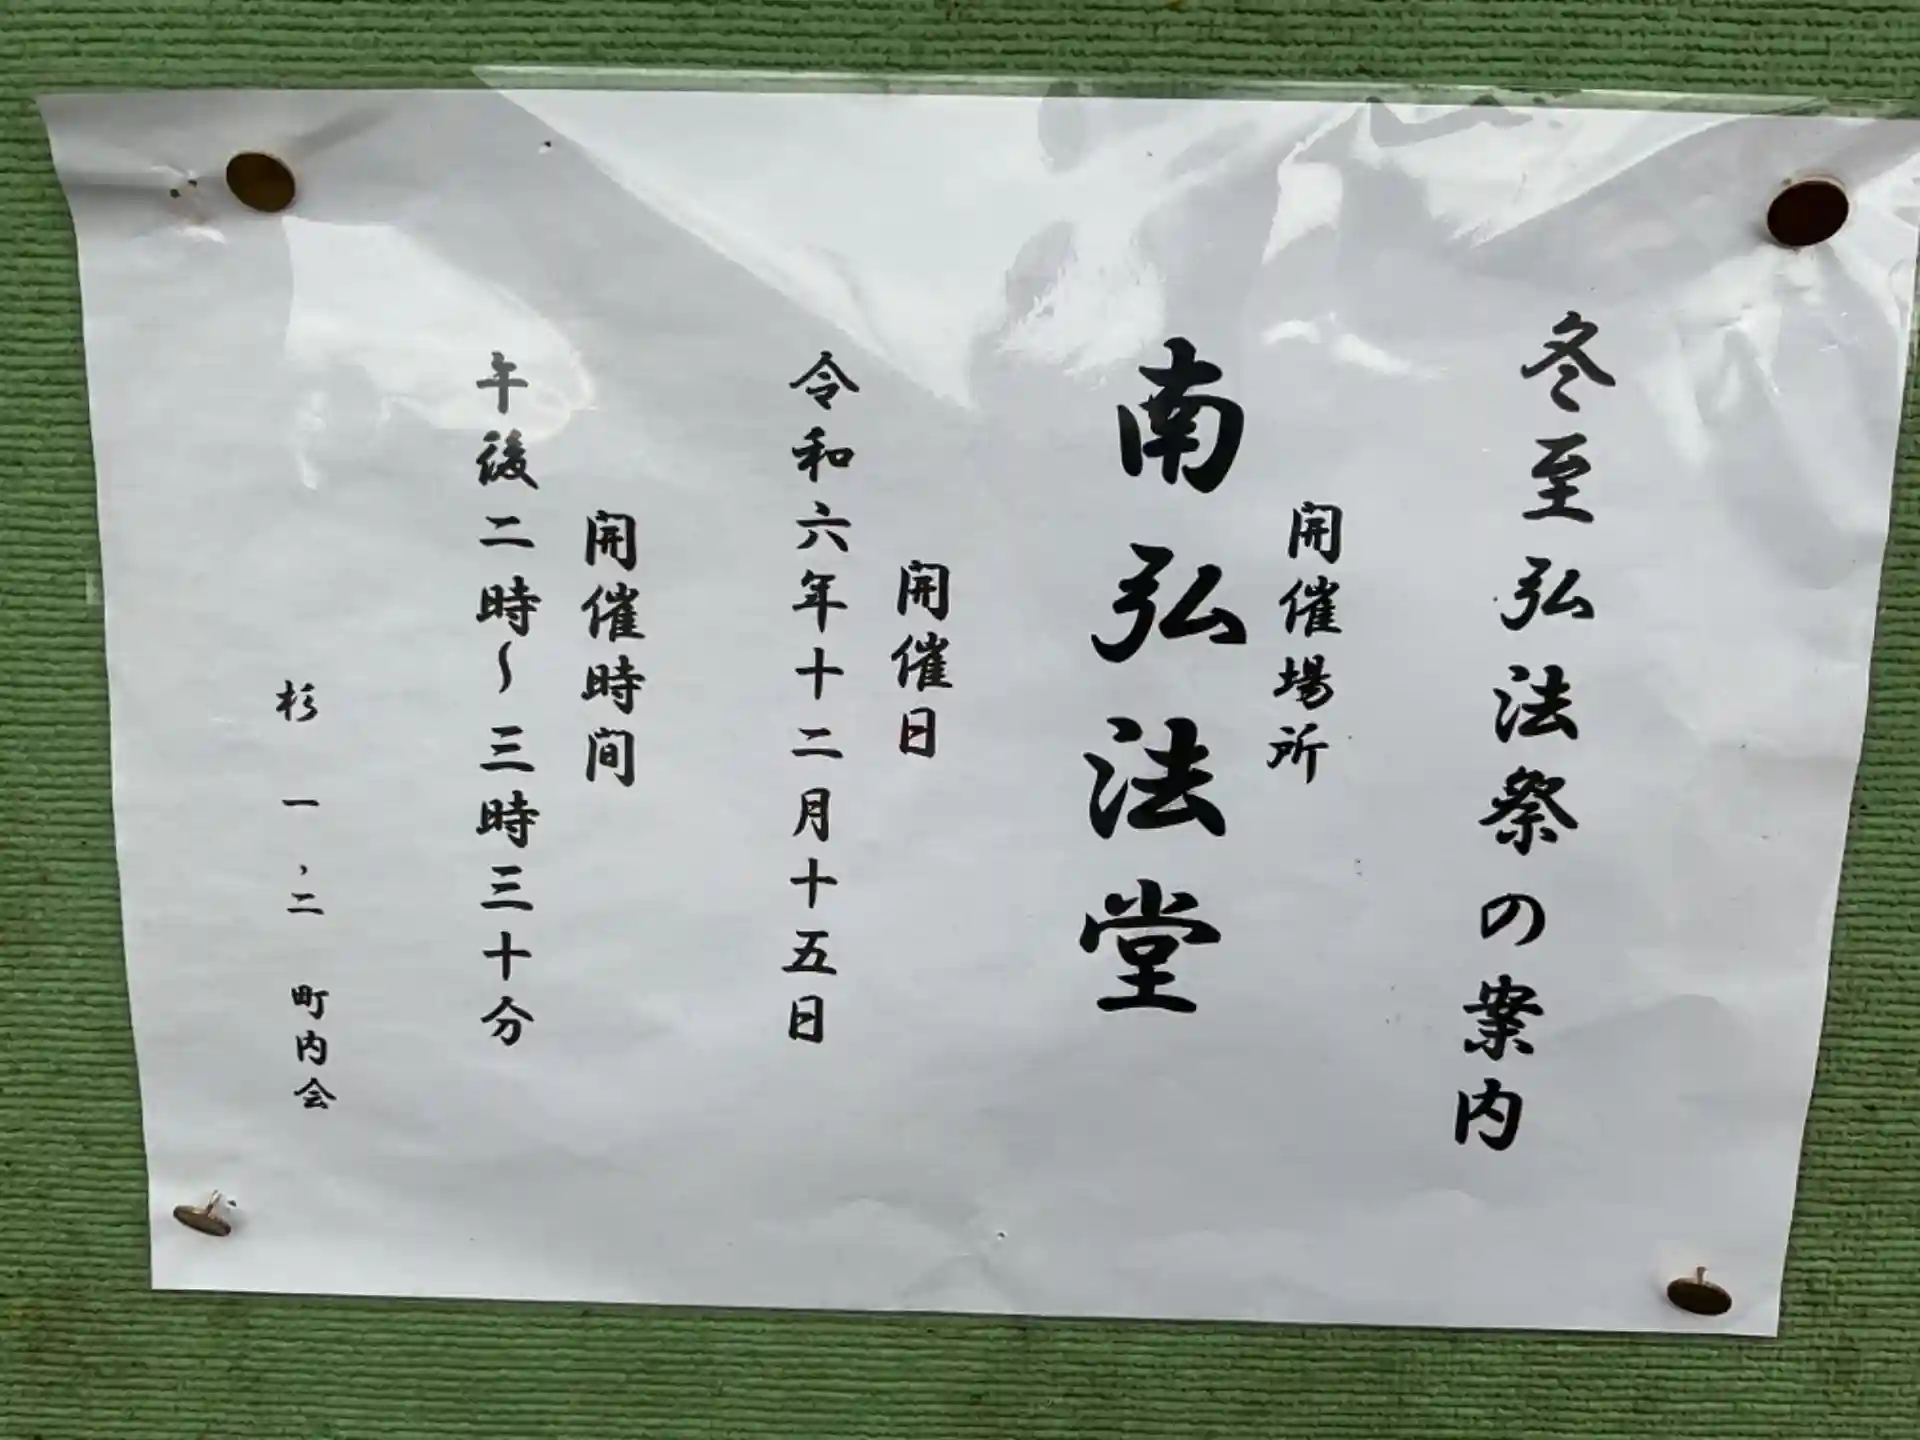 冬至弘法祭の案内
開催場所
南弘法堂
開催日
令和六年十二月十五日
開催時间
午後二時〜三時三十分
杉一、二 町内会